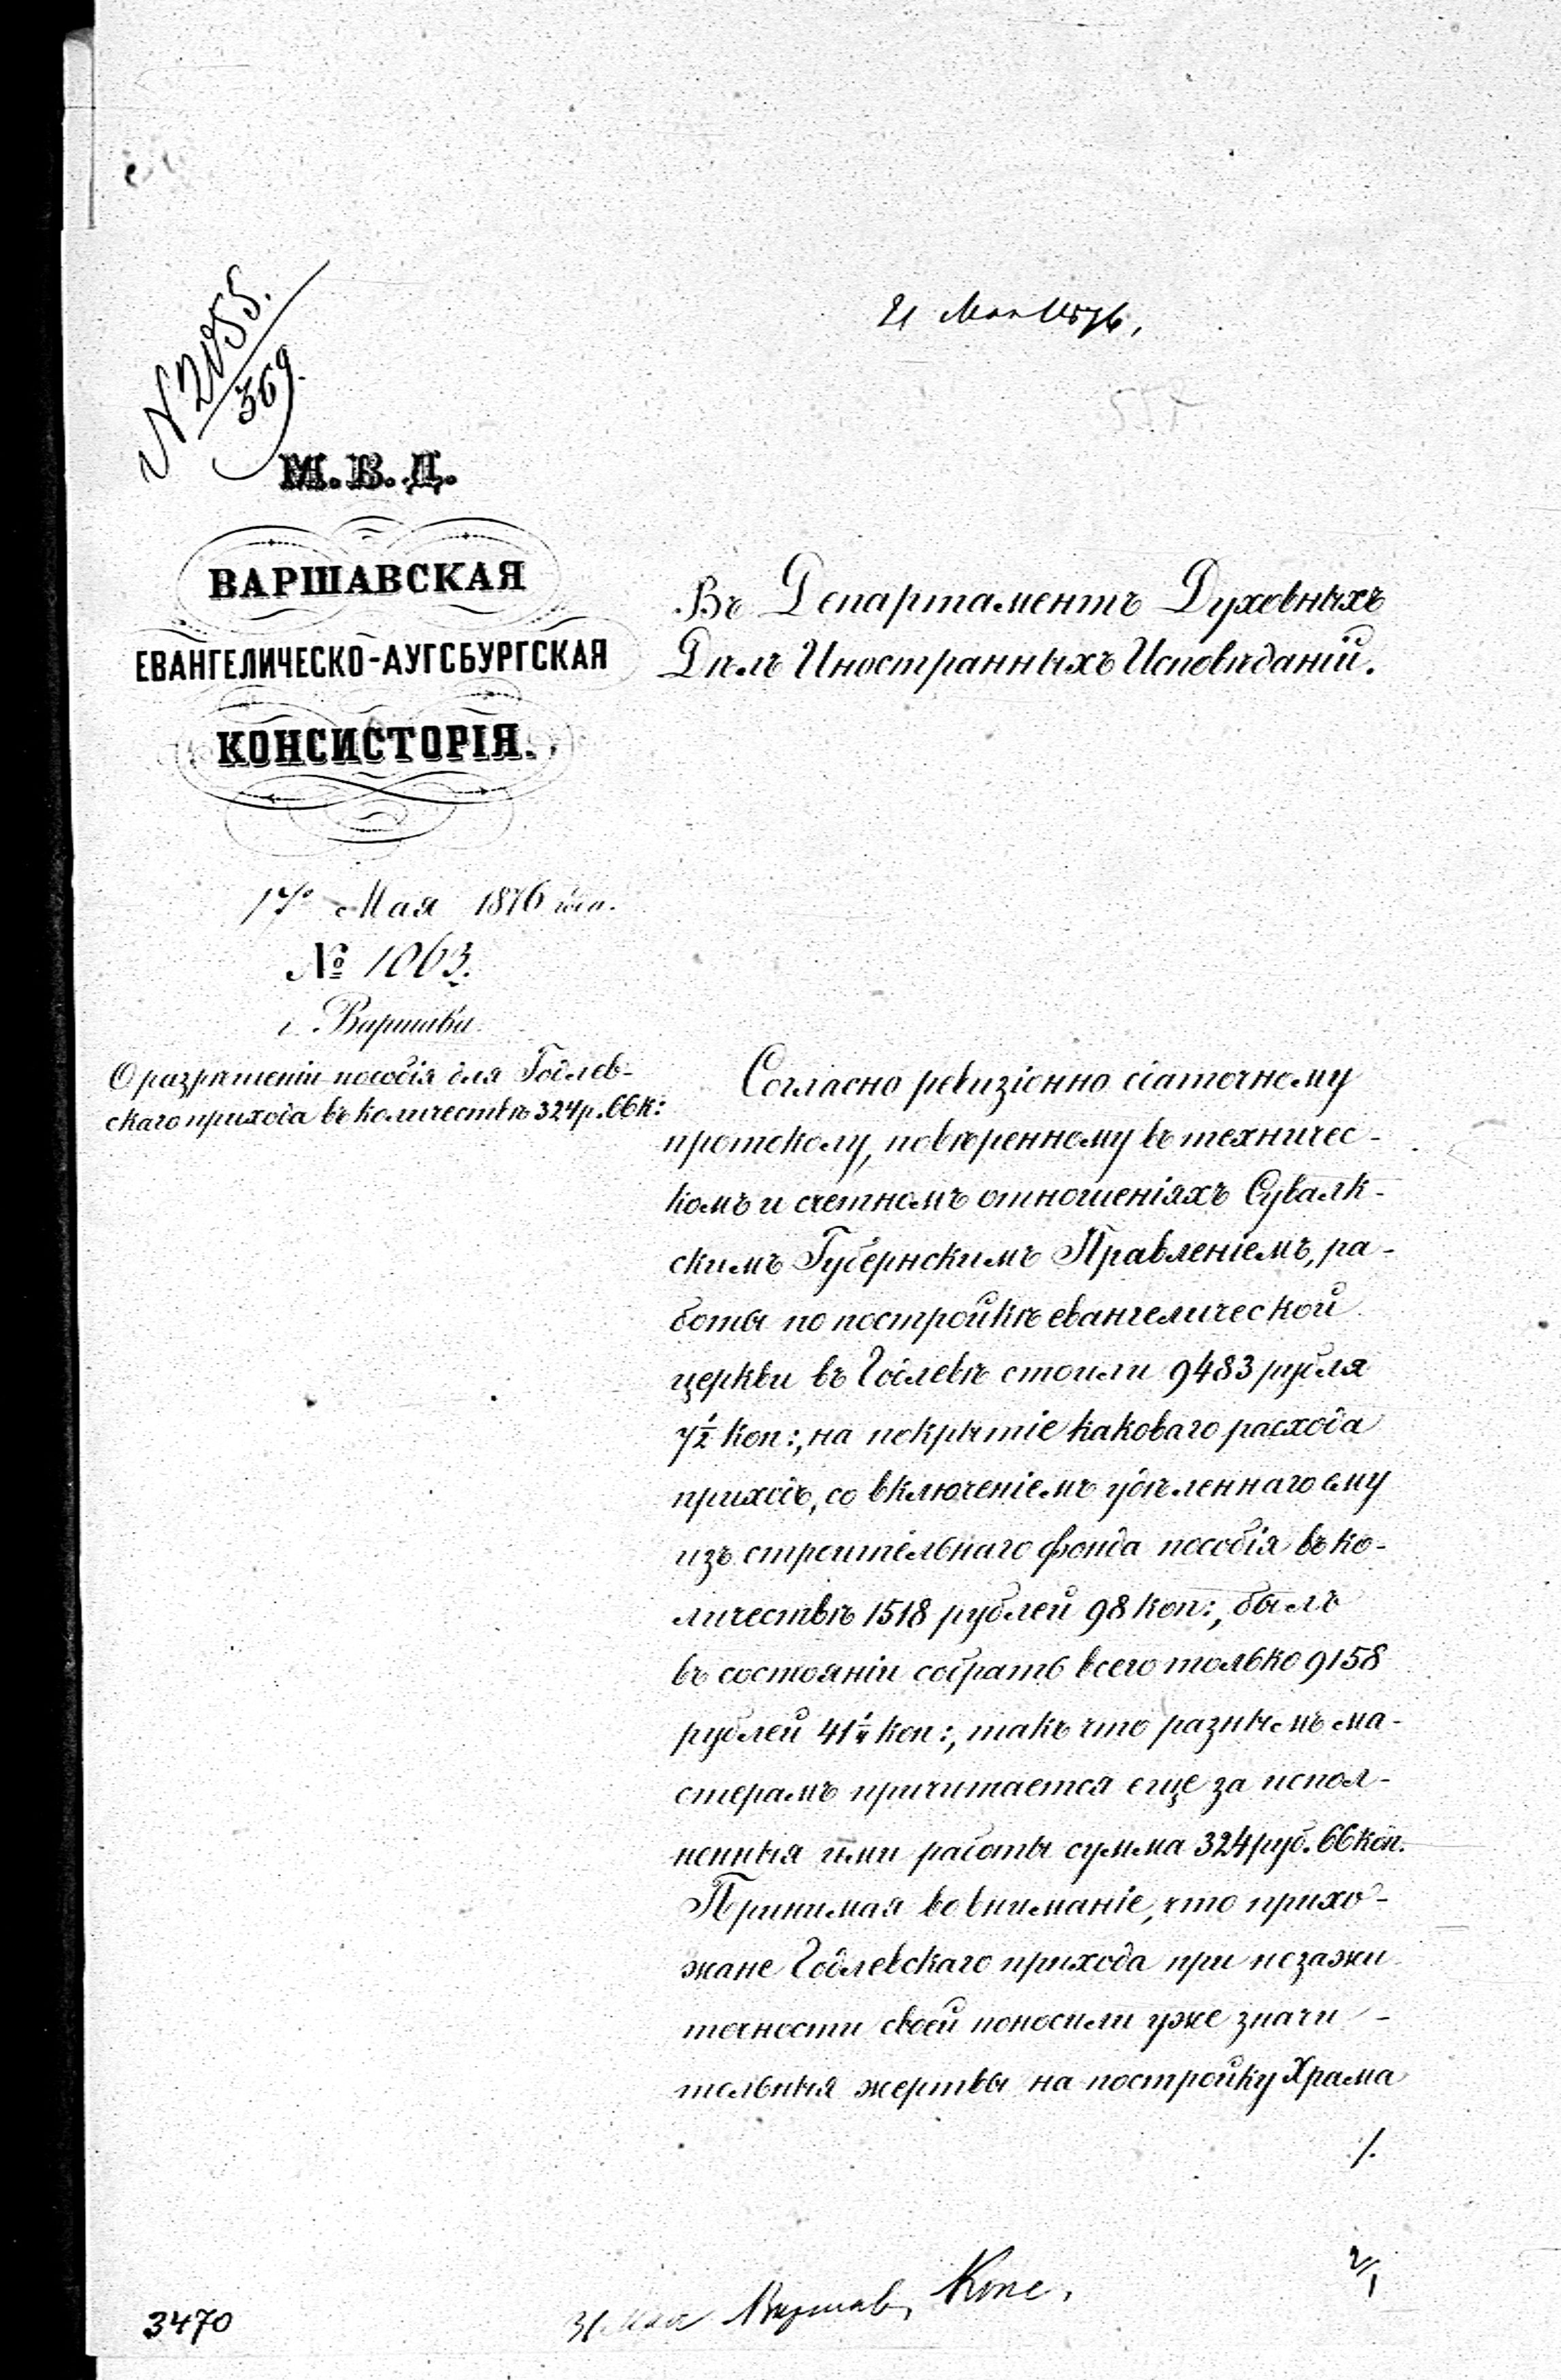 21 Мая 1876,
N 2055.
369.
М. В. Д.
ВАРШАВСКАЯ
ЕВАНГЕЛИЧЕСКО-АУГСБУРГСКАЯ
КОНСИСТОРІЯ.
17го Мая 1876 года.
№ 1063.
г. Варшава.
О разрѣшеніи пособія для Годлев-
скаго прихода въ количествѣ 324 р. 66 к:
Въ Департаментъ Духовныхъ
Дѣлъ Иностранныхъ Исповѣданій.
Согласно ревизіонно сдаточному
протоколу, повѣренному въ техничес-
комъ и счетномъ отношеніяхъ Сувалк-
скимъ Губернскимъ Правленіемъ, ра-
боты по постройкѣ евангелической
церкви въ Годлевѣ стоили 9483 рубля
7½ коп:, на покрытіе каковаго расхода
приходъ, со включеніемъ удѣленнаго ему
изъ строительнаго фонда пособія въ ко-
личествѣ 1518 рублей 98 коп:, былъ
въ состояніи собрать всего только 9158
рублей 41½ коп:, такъ что разнымъ ма-
стерамъ причитается еще за испол-
ненныя ими работы сумма 324 руб. 66 коп.
Принимая во вниманіе, что прихо-
жане Годлевскаго прихода при незажи
точности своей поносили уже значи-
тельныя жертвы на постройку Храма
./.
2/1
31 Мая Варшав, Конс.
3470